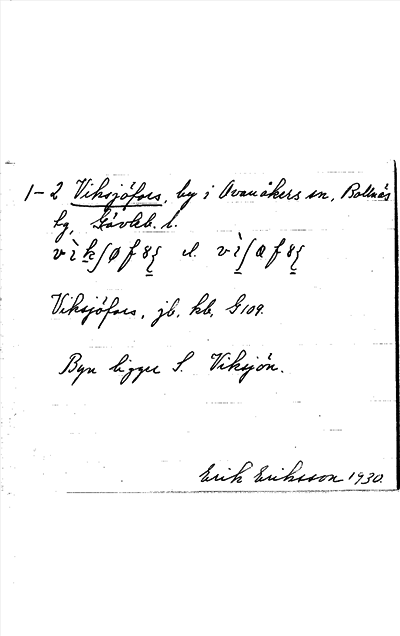 1-2 Viksjöfors, by i Ovanåkers sn, Bollnäs
tg, Gävleb. l.
el.
Viksjöfors, jb, kb, G109.
Byn ligger S. Viksjön.
Erik Eriksson 1930.